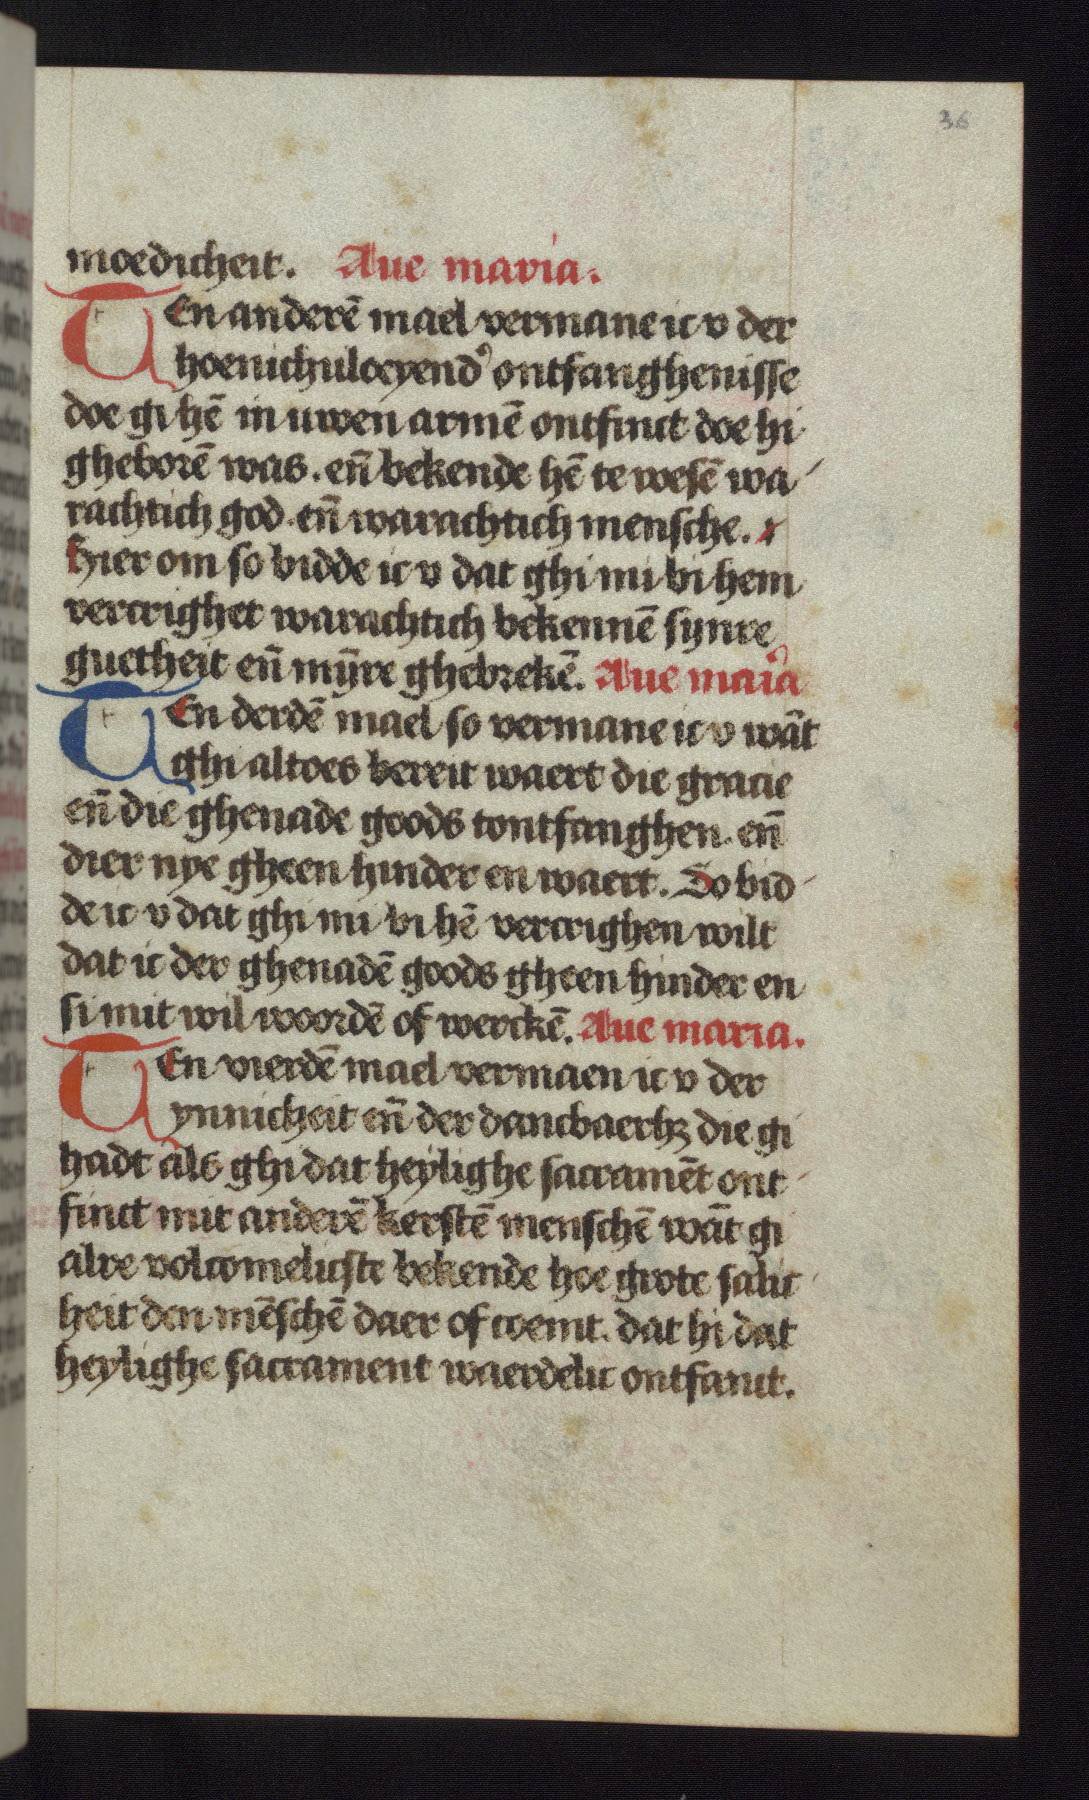 36
moedicheit. Aue maria.
TEn anderē mael vermane ic v der
hoenichuloeyend' ontfanghenisse
doe gi hē in uwen armē ontfinct doe hi
gheborē was. en̄ bekende hē te wesē wa
rachtich god. en̄ warachtich mensche.
Hier om so bidde ic v dat ghi mi bi hem
vercrighet warachtich bekennē synre
guetheit en̄ mȳre ghebrekē. Aue mar'ia
TEn derdē mael so vermane ic v wāt
ghi altoes bereit waert die gracie
en̄ die ghenade goods tontfanghen. en̄
dier nye gheen hinder en waert. So bid
de ic v dat ghi mi bi hē vercrighen wilt
dat ic der ghenadē goods gheen hinder en
si mit wil woordē of werckē. Aue maria.
TEn vierdē mael vermaen ic v der
ynnicheit en̄ der dancbaerhꝫ die gi
hadt als ghi dat heylighe sacramēt ont
finct mit anderē kerstē menschē wāt gi
alre volcomelicste bekende hoe grote salic
heit den mēschē daer of coemt. dat hi dat
heylighe sacrament waerdelic ontfanct.